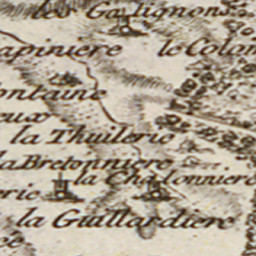 les Galignons
apiniere
le Colom
ontaine
eux
la Thuilerie
la Bretonniere
la Chalonniere
rie
la Guillardiere
ee